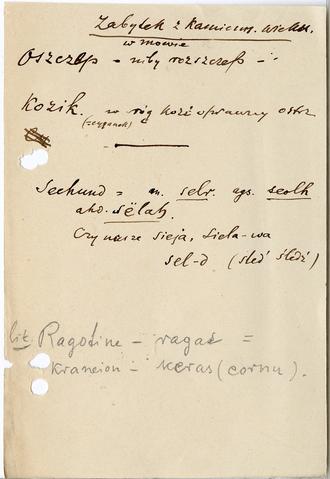 Zabytek z kamienn. wieku
w mowie
Oszczep – niby rozszczep –
Kozik. w róg kozi oprawny ostrz
(= cyganek)
Seehund = n. selr. ags. seolh
ahd. sëlah.
Czy nasze sieja, siela-wa
sel-d (śled' śledź)
lit. Ragotine – ragas =
kraneion – keras (cornu).